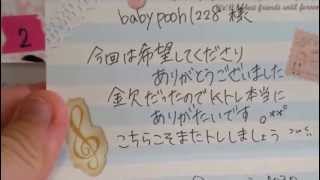 2
babypooh1228 様
今回は希望してくださり
ありがとうございました
金欠だったのでKトレ本当に
ありがたいです
こちらこそまたトレしましょう